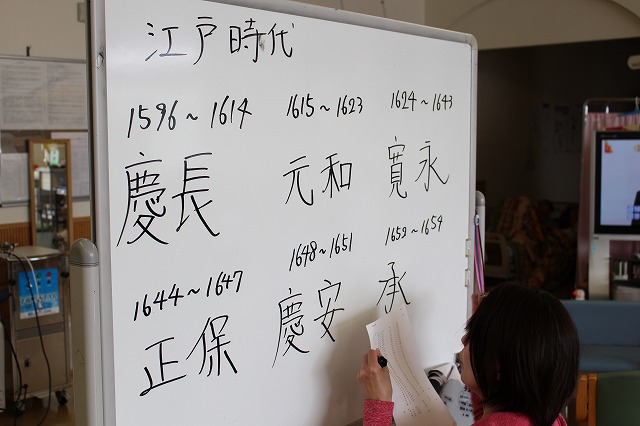 江戸時代
1596~1614
1615~1623
1624~1643
慶長
元和
寛永
1644~1647
1648~1651
1659~1654
正保
慶安
承